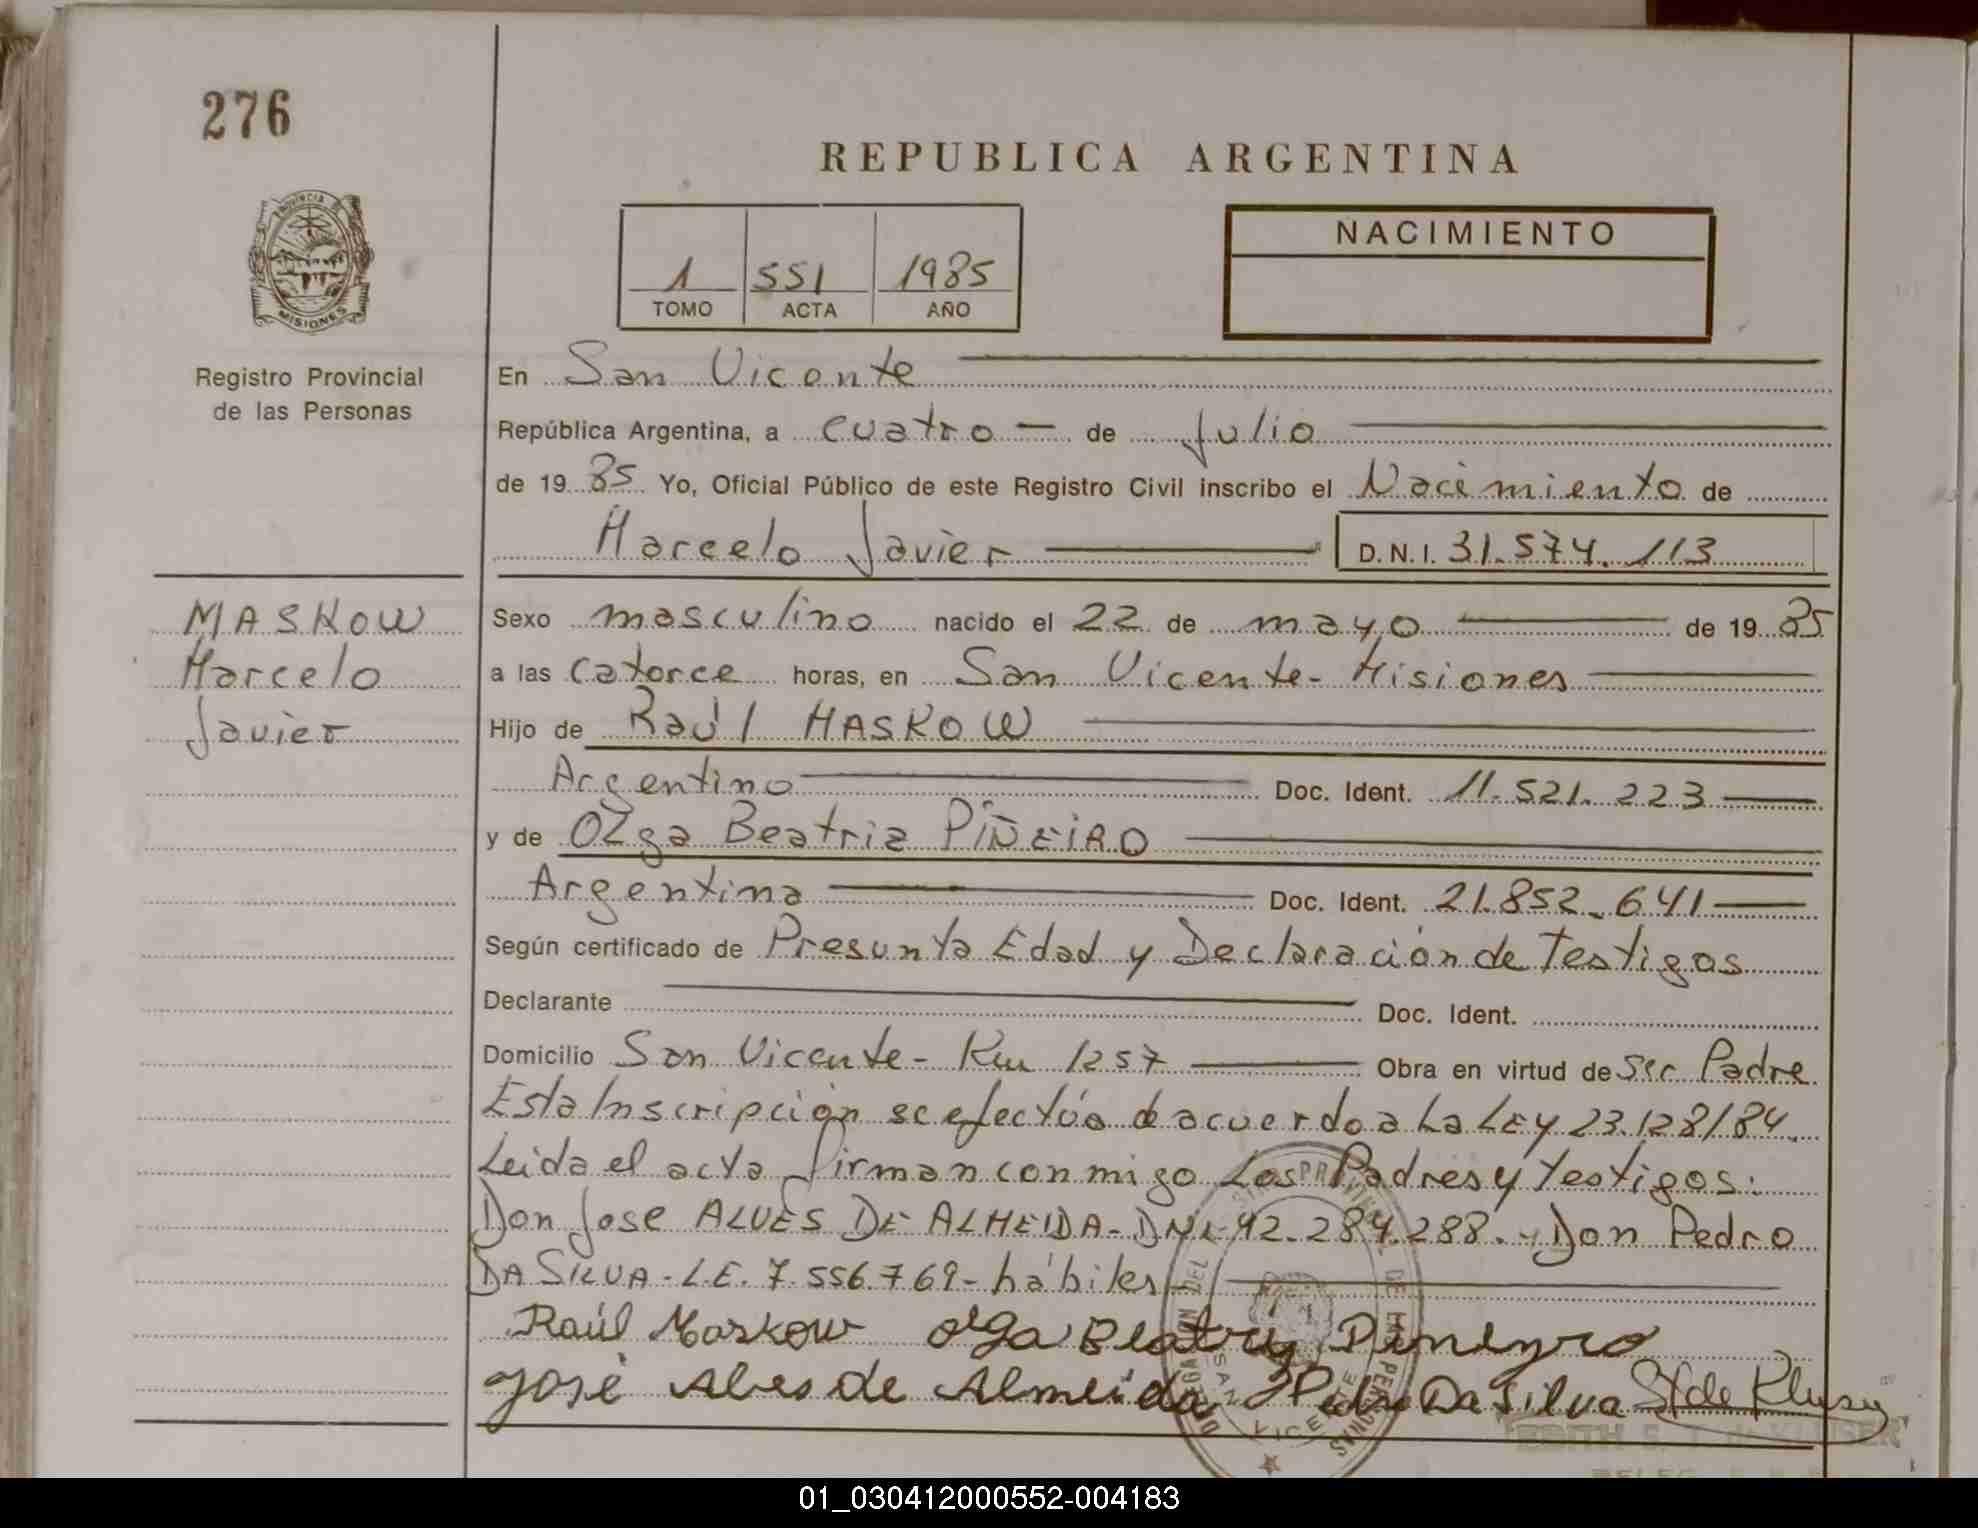 276
REPUBLICA ARGENTINA
PROVINCIA DE MISIONES
1 551 1985
TOMO ACTA AÑO
NACIMIENTO
Registro Provincial
de las Personas
En San Vicente
República Argentina, a cuatro — de Julio
de 1985 Yo, Oficial Público de este Registro Civil inscribo el Nacimiento de
Marcelo Javier D.N.I. 31.574.113
MASKOW
Marcelo
Javier
Sexo masculino nacido el 22 de mayo de 1985
a las catorce horas, en San Vicente - Misiones
Hijo de Raúl MASKOW
Argentino Doc. Ident. 11.521.223
y de Olga Beatriz PIÑEIRO
Argentina Doc. Ident. 21.852.641
Según certificado de Presunta Edad y Declaración de Testigos
Declarante Doc. Ident.
Domicilio San Vicente - Km 1257 Obra en virtud de Ser Padre
Esta Inscripción se efectúa de acuerdo a La LEY 23.128/84.
Leida el acta firman conmigo Los Padres y Testigos:
Don Jose ALVES DE ALMEIDA - DNI - 92.284.288. - Don Pedro
DA SILVA - L.E. 7.556.769 - hábiles
Raúl Maskow Olga Beatriz Pineyro
José Alves de Almeida Pedro Da Silva
01_030412000552-004183